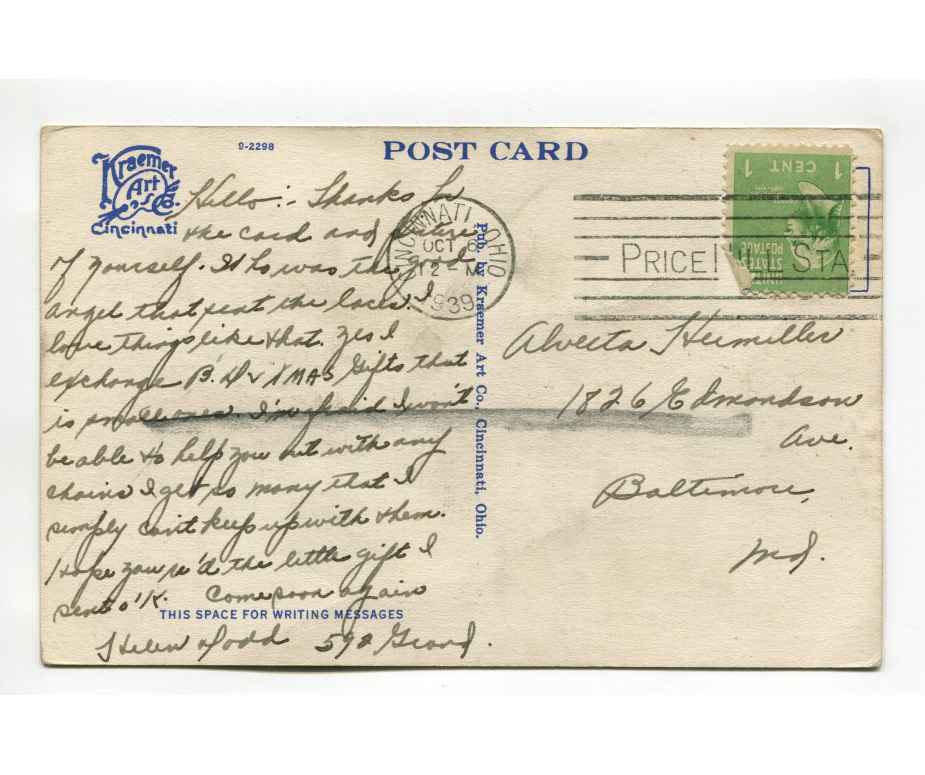 Kraemer
Art
Co.
Cincinnati
9-2298
POST CARD
1 CENT 1
UNITED
STATES
POSTAGE
CINCINNATI, OHIO
OCT 6
12 - M
1939
PRICE STA
Hello:- Thanks for
the card and
of yourself. It was the good
angel that sent the laces. I
love things like that. Yes I
exchange B.D & XMAS Gifts that
is small ones. I'm afraid I won't
be able to help you out with any
chains I get so many that I
simply can't keep up with them.
Hope you re'd the little gift I
sent o'K. Come soon again
THIS SPACE FOR WRITING MESSAGES
Helen Dodd 598 Grand.
Pub. by Kraemer Art Co., Cincinnati, Ohio.
Alverta
1826 Edmondson
Ave.
Baltimore,
Md.